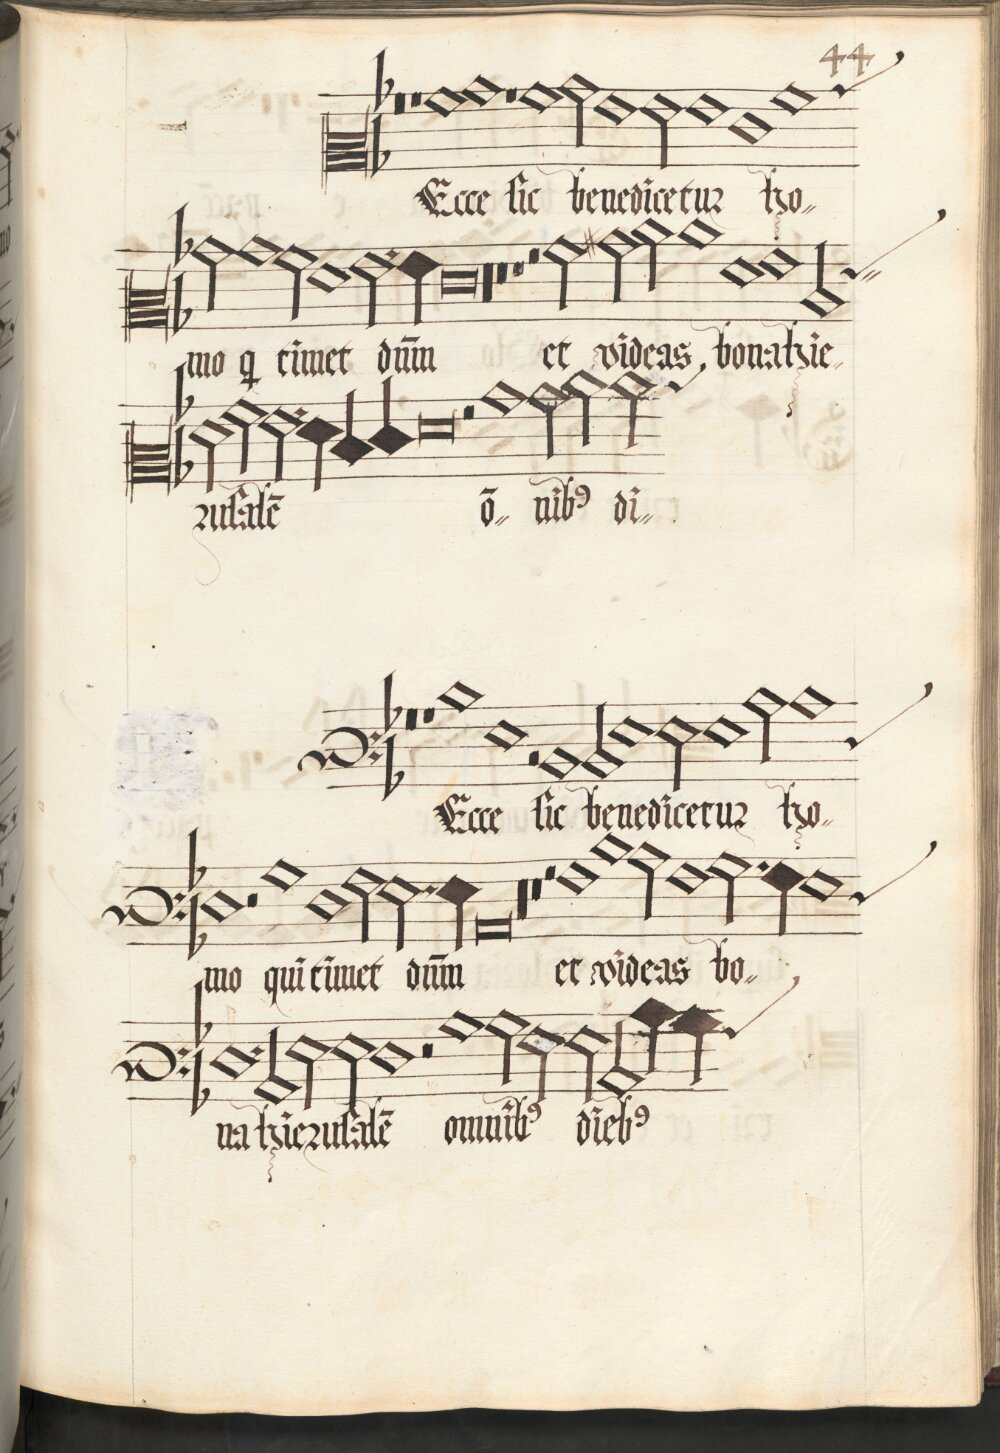 44
Ecce sic benedicetur ho„
mo q timet dn̄m et videas bona hie„
rusalē ō„ nibꝰ di„
Ecce sic benedicetur ho„
mo qui timet dn̄m et videas bo„
na hierusalē omnibꝰ diebꝰ